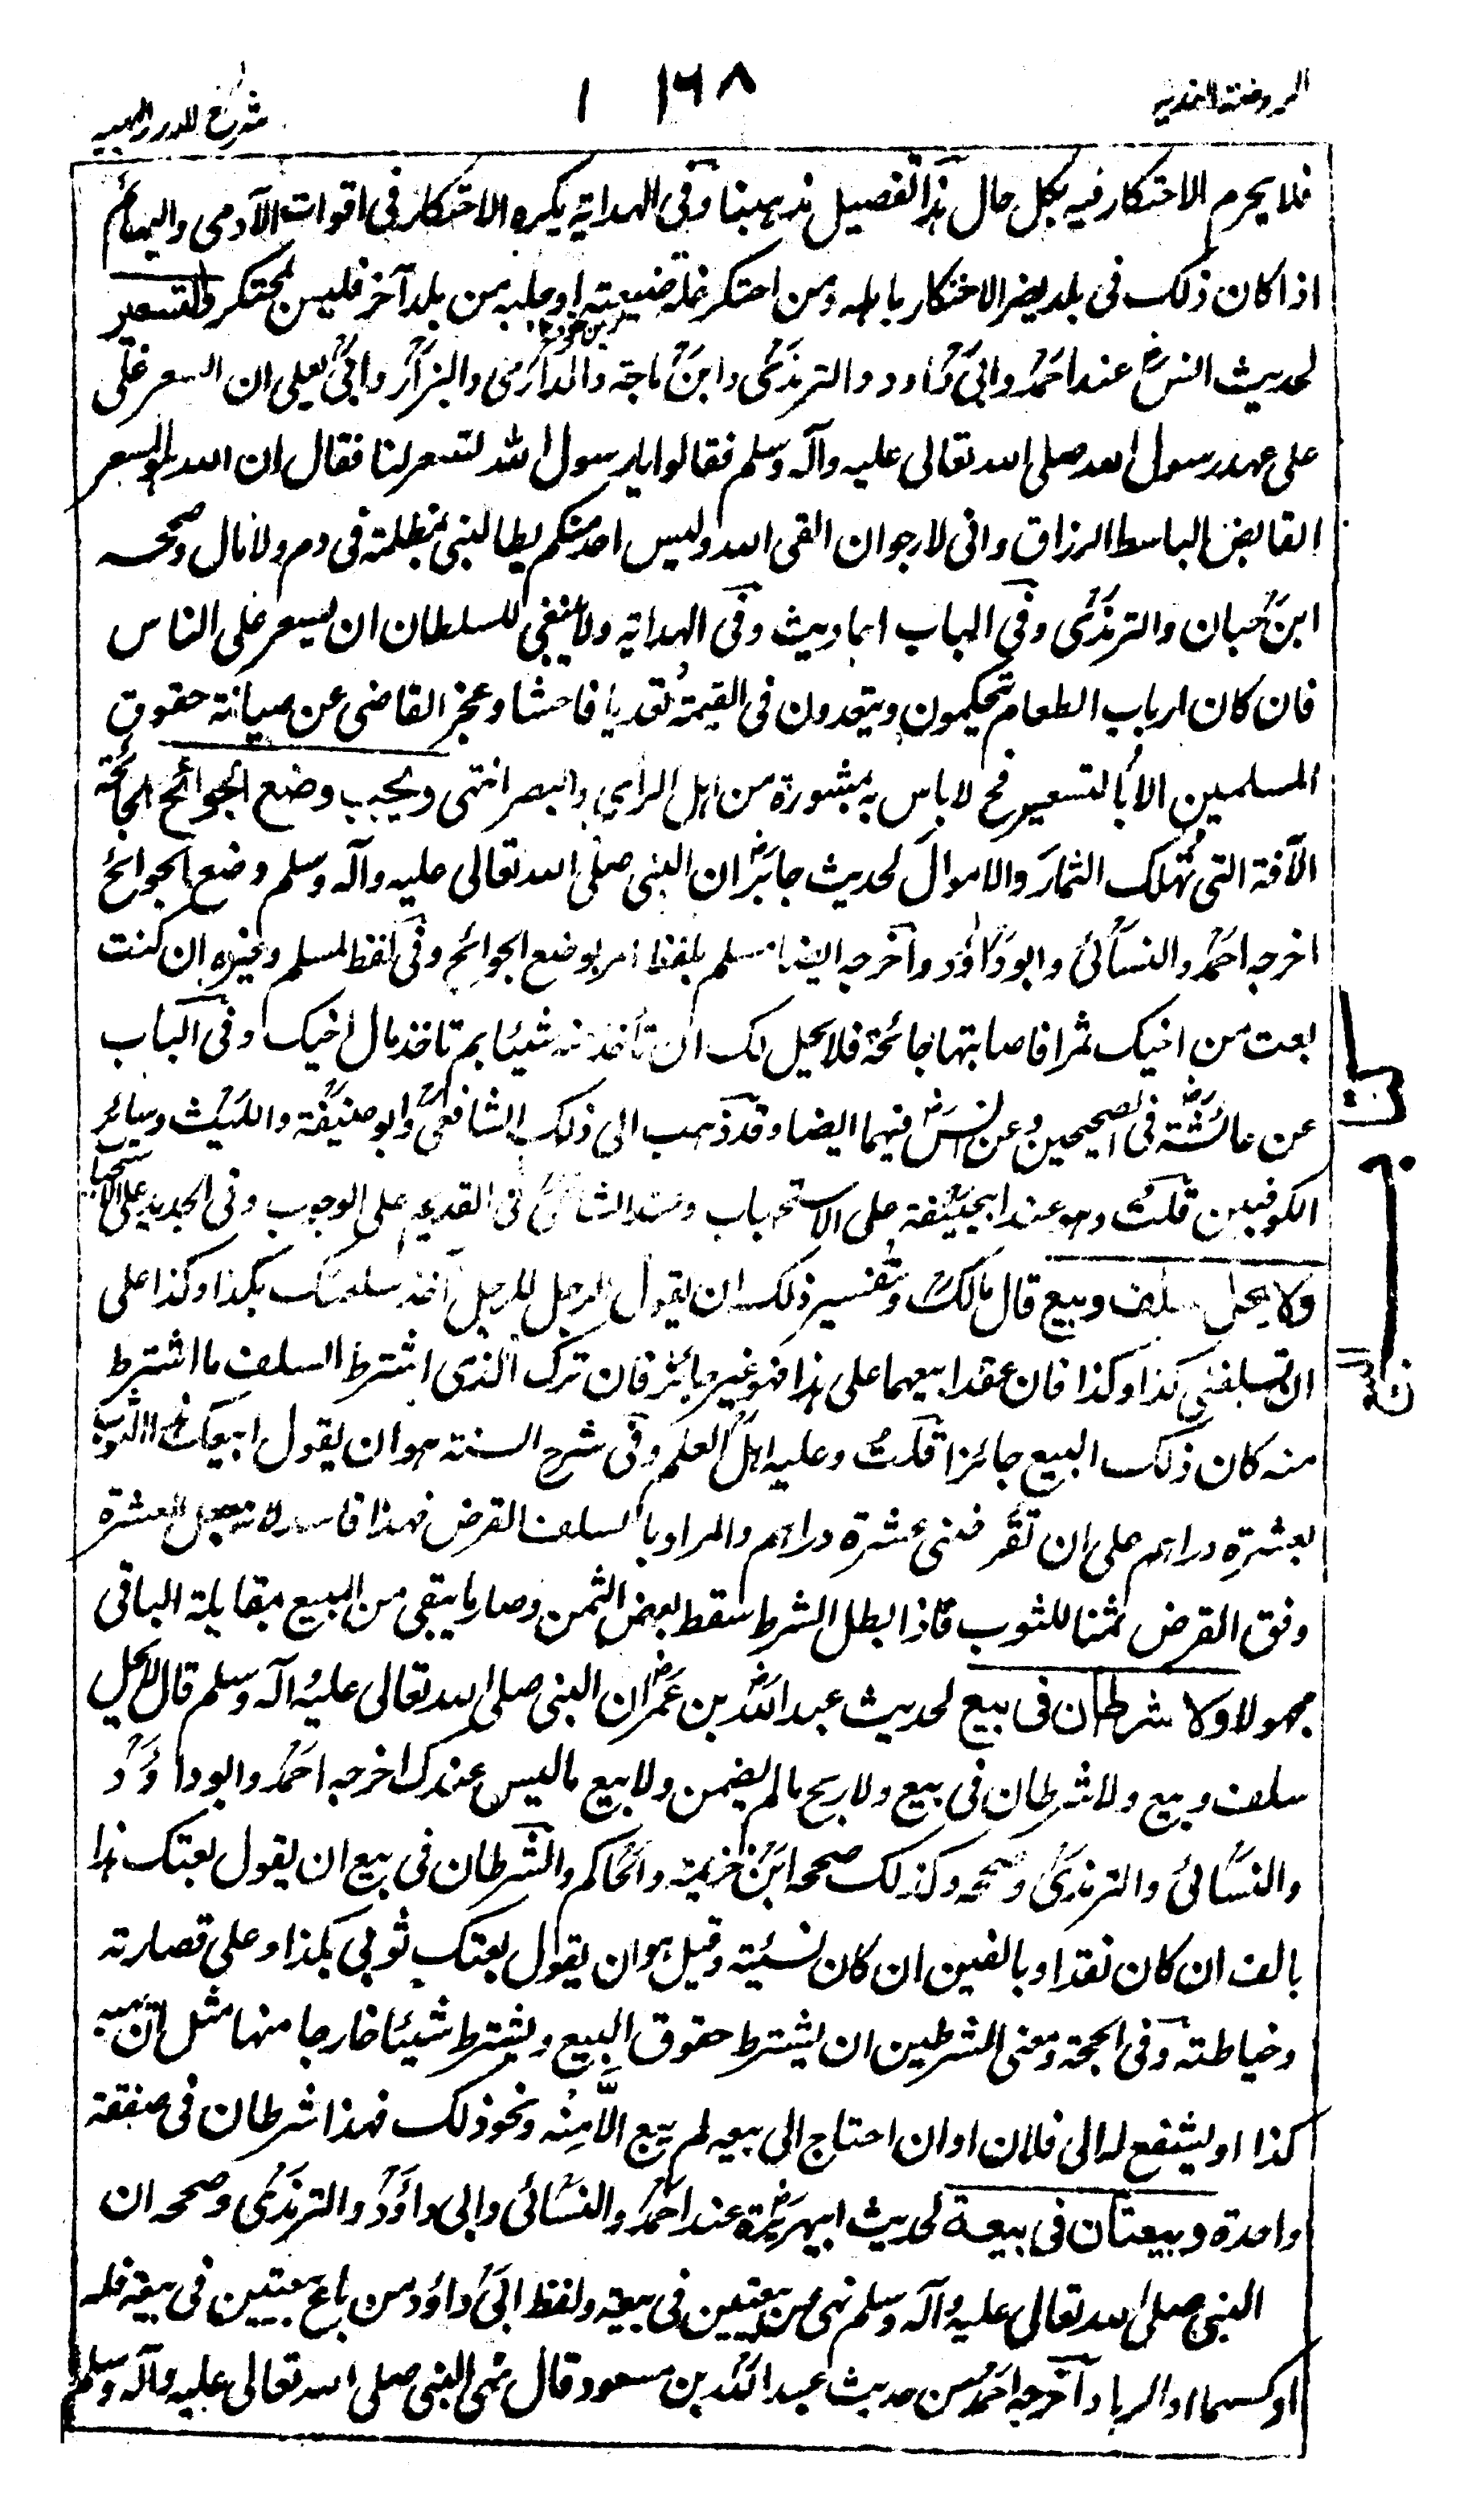 الروضة الندية ١٦٨ شرح الدرر البهية
فلا يحرم الاحتكار فيه بكل حال هذا تفصيل مذهبنا وفي الهداية يكره الاحتكار في اقوات الآدمي والبهائم
اذا كان ذلك في بلد يضر الاحتكار باهله ومن احتكر غلة ضيعته او جلبه من بلد آخر فليس بمحتكر والتسعير
لحديث انس عند احمد وابي داود والترمذي وابن ماجة والدارمي والبزار وابي يعلى ان السعر غلى
على عهد رسول الله صلى الله تعالى عليه وآله وسلم فقالوا يا رسول الله لتسعر لنا فقال ان الله هو المسعر
القابض الباسط الرزاق واني لارجو ان القى الله وليس احد منكم يطالبني بمظلمة في دم ولا مال وصححه
ابن حبان والترمذي وفي الباب احاديث وفي الهداية ولا ينبغي للسلطان ان يسعر على الناس
فان كان ارباب الطعام يتحكمون ويتعدون في القيمة تعديا فاحشا وعجز القاضي عن صيانة حقوق
المسلمين الا بالتسعير فح لا باس به بمشورة من اهل الراي والبصر انتهى ويجب وضع الجوائح الجائحة
الآفة التي تهلك الثمار والاموال لحديث جابر ان النبي صلى الله تعالى عليه وآله وسلم وضع الجوائح
اخرجه احمد والنسائي وابو داؤد وآخرجه ايضا مسلم بلفظ امر بوضع الجوائح وفي لفظ لمسلم وغيره ان كنت
بعت من اخيك ثمرا فاصابتها جائحة فلا يحل لك ان تأخذ منه شيئا بم تاخذ مال اخيك وفي الباب
عن عائشة في الصحيحين وعن انس فيهما ايضا وقد ذهب الى ذلك الشافعي وابو حنيفة والليث وسائر
الكوفيين قلت وهو عند ابيحنيفة على الاستحباب وعند الشافعي في القديم على الوجوب وفي الجديد على الاستحباب
ولا يحل سلف وبيع قال مالك وتفسير ذلك ان يقول الرجل للرجل آخذ سلعتك بكذا وكذا على
ان تسلفني كذا وكذا فان عقدا بيعهما على هذا فهو غير جائز فان ترك الذي اشترط السلف ما اشترط
منه كان ذلك البيع جائزا قلت وعليه اهل العلم وفي شرح السنة هو ان يقول ابيعك هذا الثوب
بعشرة دراهم على ان تقرضني عشرة دراهم والمراد بالسلف القرض فهذا فاسد لانه جعل العشرة
وفق القرض ثمنا للثوب فاذا بطل الشرط سقط بعض الثمن وصار ما يبقى من المبيع مقابلة الباقي
مجهولا ولا شرطان في بيع لحديث عبد الله بن عمر ان النبي صلى الله تعالى عليه وآله وسلم قال لا يحل
سلف وبيع ولا شرطان في بيع ولا ربح ما لم يضمن ولا بيع ما ليس عندك اخرجه احمد وابو داؤد
والنسائي والترمذي وصححه وكذلك صححه ابن خزيمة والحاكم والشرطان في بيع ان يقول بعتك هذا
بالف ان كان نقدا وبالفين ان كان نسيئة وقيل هو ان يقول بعتك ثوبي بكذا وعلى قصارته
وخياطته وفي الحجة ومعنى الشرطين ان يشترط حقوق البيع ويشترط شيئا خارجا منها مثل ان يهبه
كذا او يشفع له الى فلان او ان احتاج الى بيعه لم يبع الا منه ونحو ذلك فهذا شرطان في صفقة
واحدة وبيعتان في بيعة لحديث ابيهريرة عند احمد والنسائي وابي داؤد والترمذي وصححه ان
النبي صلى الله تعالى عليه وآله وسلم نهى عن بيعتين في بيعة ولفظ ابي داؤد من باع بيعتين في بيعة فله
اوكسهما او الربا وآخرجه احمد من حديث عبد الله بن مسعود قال نهى النبي صلى الله تعالى عليه وآله وسلم